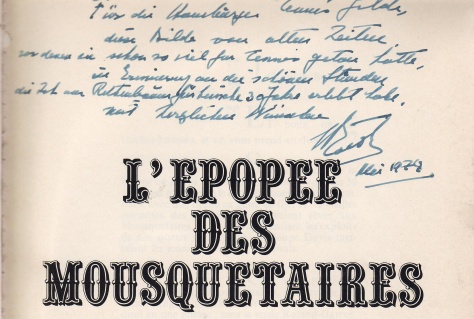 Für die Hamburger Tennis Gilde,
diese Bilde von alten Zeiten
von denen ich schon so viel für Tennis getan hatte,
in Erinnerung an die schönen Stunden
die ich am Rothenbaum für 30 Jahre erlebt habe,
mit herzlichen Wünschen
Mai 1978
L'EPOPEE
DES
MOUSQUETAIRES